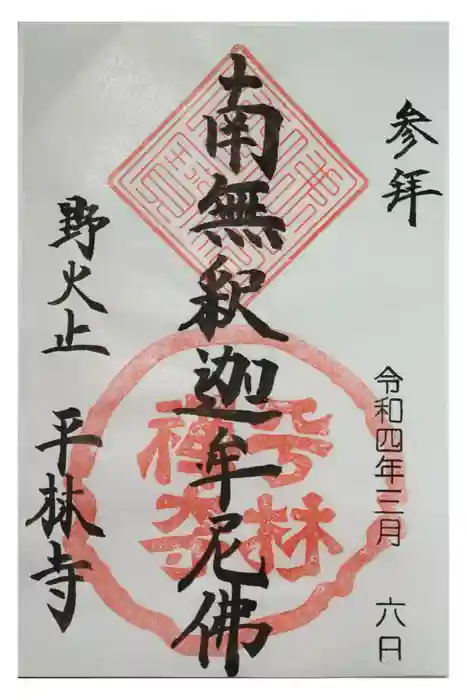 参拝
令和四年三月 六日
南無釈迦牟尼佛
野火止 平林寺
平林禅寺